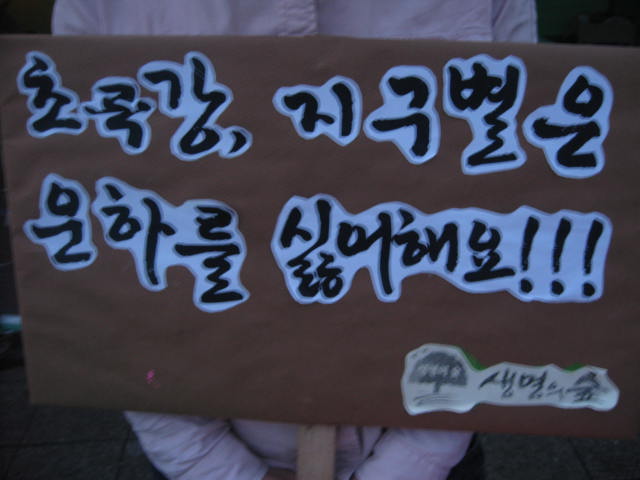 초록강, 지구별은
운하를 싫어해요!!!
생명의숲